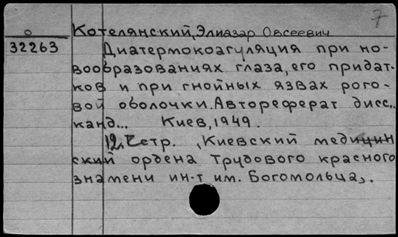 7
Котелянский, Элиазар Овсеевич
32263
Диатермокоагуляция при но-
вообразованиях глаза, его придат-
ков и при гнойных язвах рого-
вой оболочки. Автореферат дисс.
канд... Киев, 1949.
12 стр. (Киевский медицин
ский ордена Трудового красного
знамени ин-т им. Богомольца).